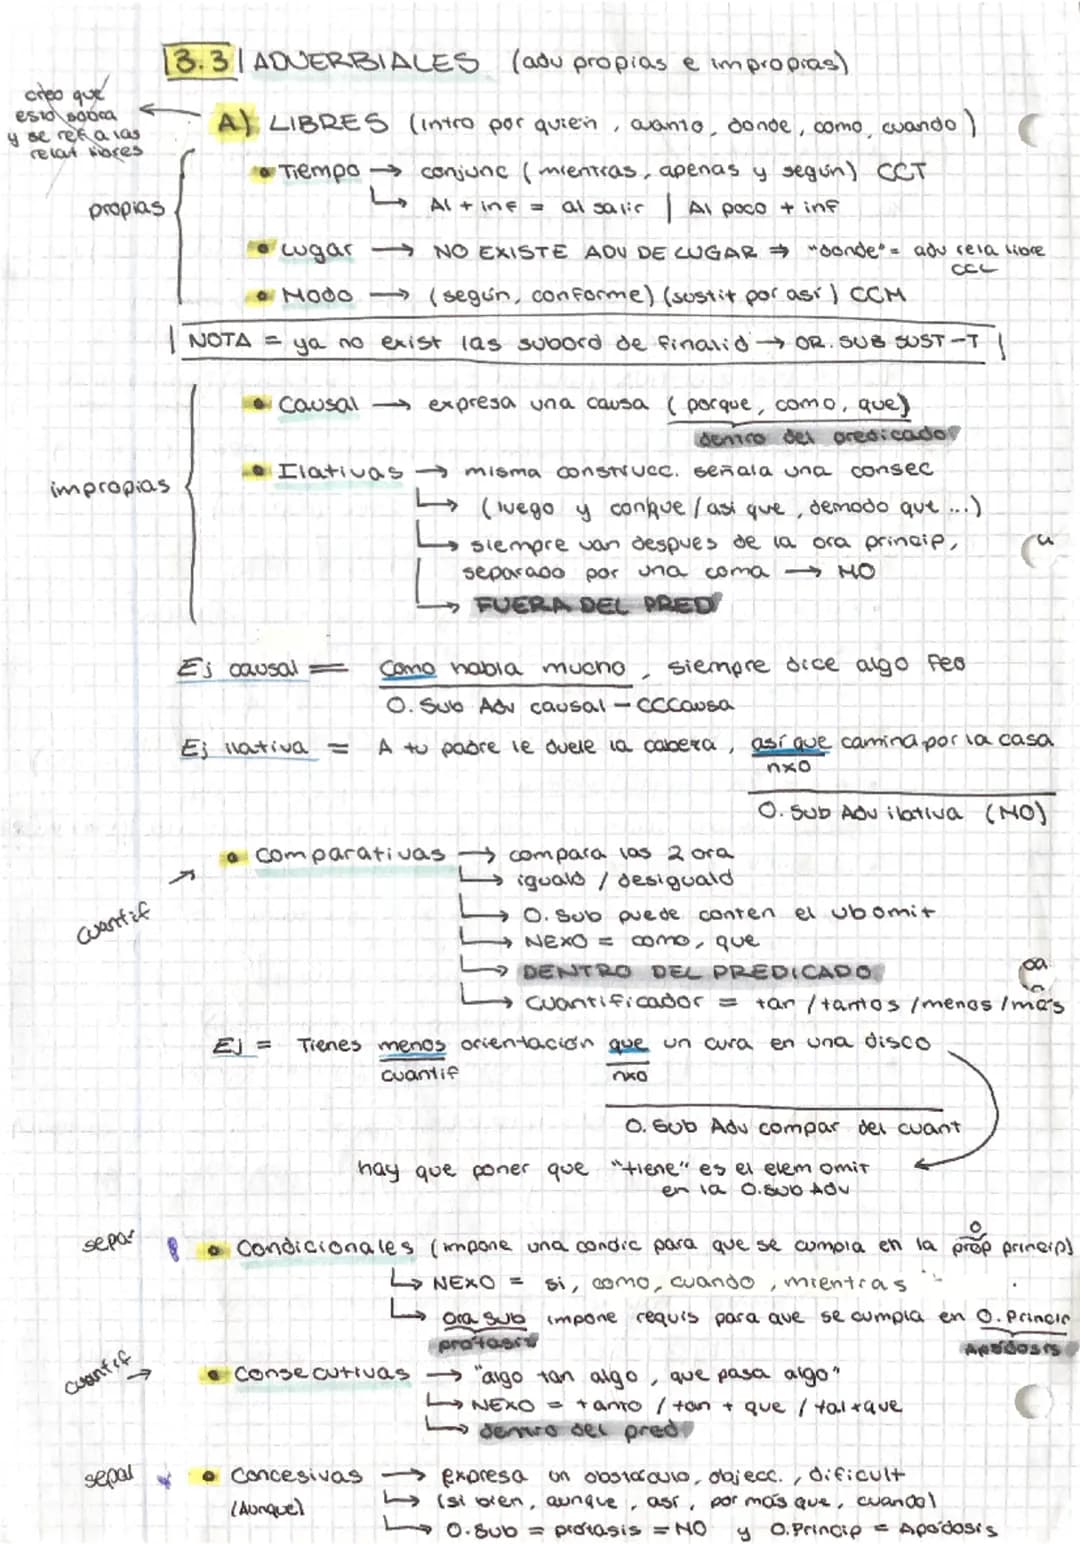 3.3 | ADVERBIALES (adv propias e impropias)
creo que
esto sobra
y se ref a las
relat libres
A) LIBRES (intro por quien, cuanto, donde, como, cuando)
propias
• Tiempo → conjunc (mientras, apenas y según) CCT
↳ Al + inf = al salir | Al poco + inf
• Lugar → NO EXISTE ADV DE LUGAR ⇒ "donde" = adv rela libre
CCL
• Modo → (según, conforme) (sustit por así) CCM
NOTA = ya no exist las subord de finalid → OR. SUB SUST-T
impropias
• Causal → expresa una causa (porque, como, que)
dentro del predicado
• Ilativas → misma construcc. señala una consec
↳ (luego y conque / asi que, demodo que ...)
↳ siempre van despues de la ora princip,
separado por una coma → MO
↳ FUERA DEL PRED
Ej causal = Como habla mucho, siempre dice algo feo
O. Sub Adv causal - CCCausa
Ej ilativa = A tu padre le duele la cabeza, así que camina por la casa
nxo
O. Sub Adv ilativa (MO)
cuantif
• Comparativas → compara las 2 ora
↳ iguald / desiguald
↳ O. Sub puede conten el vb omit
↳ NEXO = como, que
↳ DENTRO DEL PREDICADO
↳ Cuantificador = tan / tantos / menos / más
Ej = Tienes menos orientación que un cura en una disco
cuantif nxo
O. Sub Adv compar del cuant
hay que poner que "tiene" es el elem omit
en la O. Sub Adv
separ
• Condicionales (impone una condic para que se cumpla en la prop princip)
o
↳ NEXO = si, como, cuando, mientras
↳ Ora Sub impone requis para que se cumpla en O. Princip
protasis Apódosis
cuantif →
• Consecutivas → "algo tan algo, que pasa algo"
↳ NEXO = tanto / tan + que / tal + que
↳ dentro del pred
separ
• Concesivas → expresa un obstáculo, objecc., dificult
(Aunque) ↳ (si bien, aunque, así, por más que, cuando)
↳ O. Sub = prótasis = MO y O. Princip = Apódosis